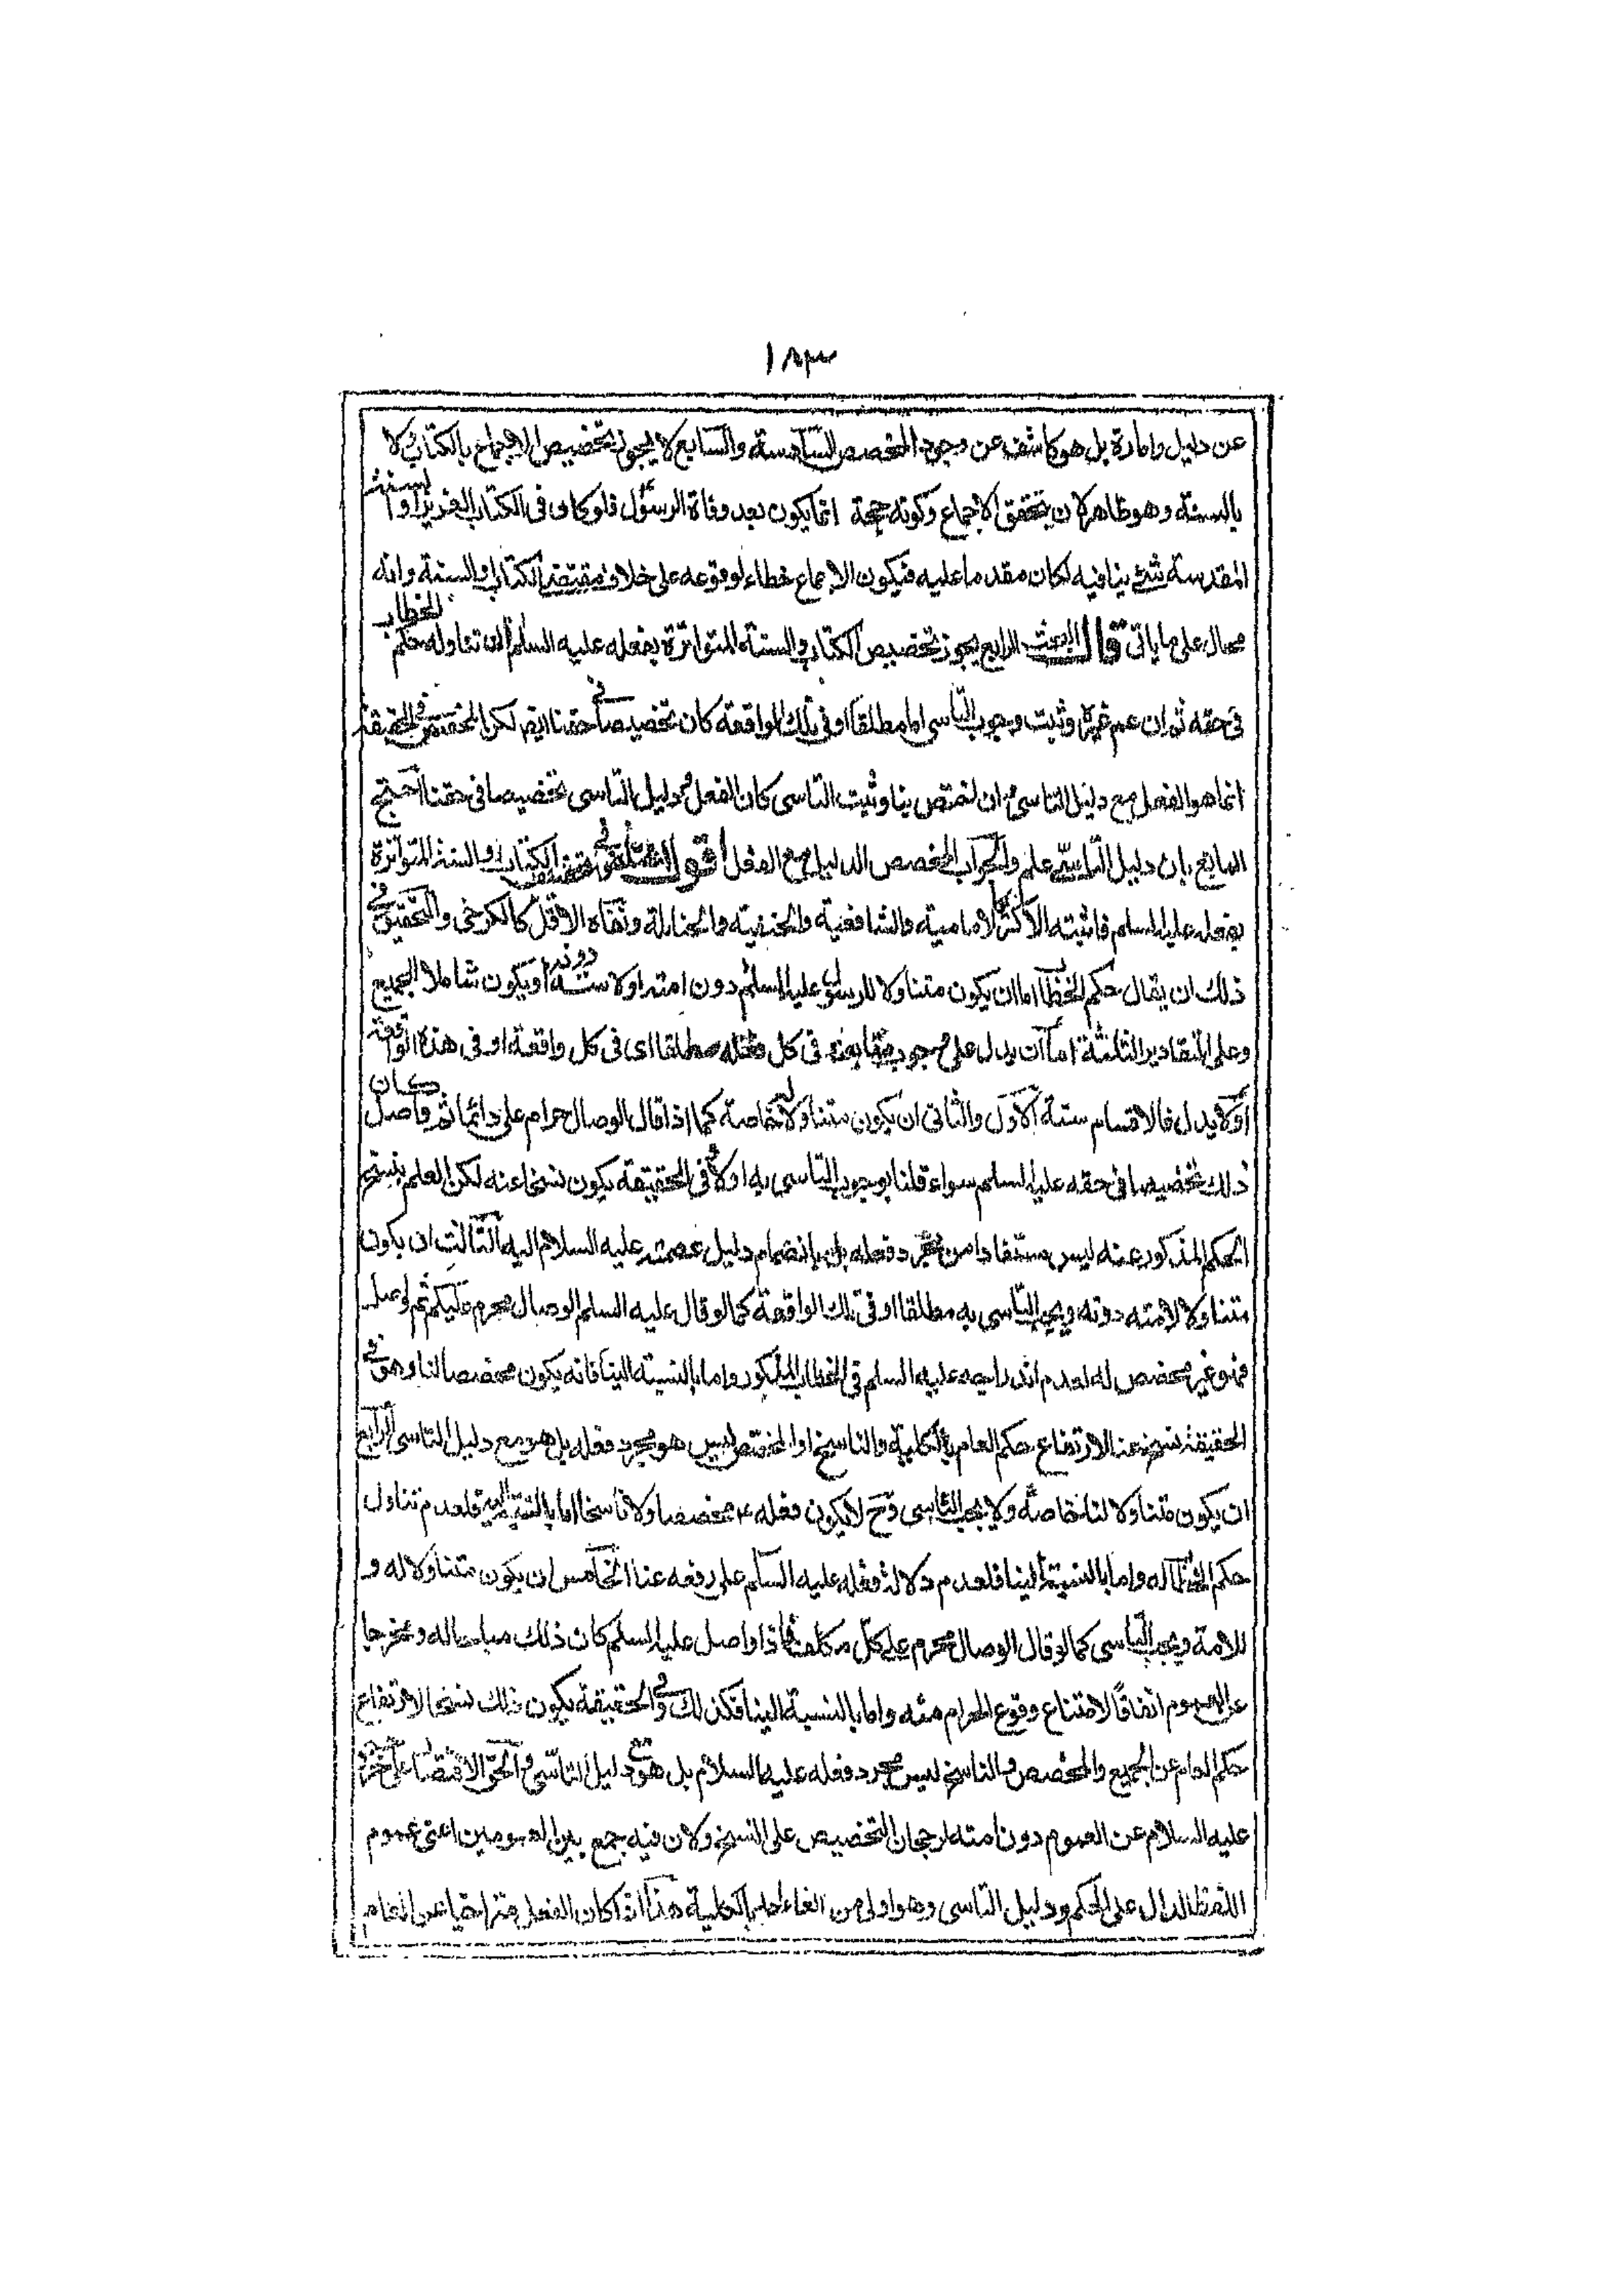 ١٨٣
عن دليل وامارة بل هو كاشف عن وجود المخصص السادسة والسابع لا يجوز تخصيص الاجماع بالكتاب ولا
بالسنة وهو ظاهر لان تحقق الاجماع وكونه حجة انما يكون بعد وفاة الرسول فلو كان فى الكتاب العزيز او السنة
المقدسة شئ ينافيه لكان مقدما عليه فيكون الاجماع خطاء لوقوعه على خلاف مقتضى الكتاب والسنة وانه
محال على ما ياتى قال البحث الرابع يجوز تخصيص الكتاب والسنة المتواترة بفعله عليه السلم ان تناوله حكم الخطاب
فى حقه ثم ان عم غيره وثبت وجوب التاسى اما مطلقا او فى تلك الواقعة كان تخصيصا فى حقنا ايض لكن المخصص فى الحقيقة
انما هو الفعل مع دليل التاسى وان اختص بنا وثبت التاسى كان الفعل مع دليل التاسى تخصيصا فى حقنا احتج
المانع بان دليل التاسى علم والجواب المخصص الدليل مع الفعل اقول اختلفوا فى تخصيص الكتاب او السنة المتواترة
بفعله عليه السلم فاثبته الاكثر كالامامية والشافعية والحنفية والحنابلة ونفاه الاقل كالكرخى والتحقيق فى
ذلك ان يقال حكم الخطاب اما ان يكون متناولا للرسول عليه السلم دون امته او لامته دونه او يكون شاملا للجميع
وعلى التقادير الثلثة اما ان يدل على وجوب متابعته فى كل فعله مطلقا اى فى كل واقعة او فى هذه الواقعة
او لا يدل فالاقسام ستة الاول والثانى ان يكون متناولا له خاصة كما اذا قال الوصال حرام على دائما ثم واصل كان
ذلك تخصيصا فى حقه عليه السلم سواء قلنا بوجوب التاسى به او لا وفى الحقيقة يكون نسخا عنه لكن العلم بنسخ
الحكم المذكور عنه ليس مستفادا من مجرد فعله بل بانضمام دليل عصمته عليه السلام اليه الثالث ان يكون
متناولا لامته دونه ويجب التاسى به مطلقا او فى تلك الواقعة كما لو قال عليه السلم الوصال محرم عليكم ثم واصل
فهو غير مخصص له لعدم اندراجه عليه السلم فى الخطاب المذكور واما بالنسبة الينا فانه يكون مخصصا لنا وهو فى
الحقيقة نسخ عنا لارتفاع حكم العام بالكلية والناسخ او المخصص ليس هو مجرد فعله بل هو مع دليل التاسى الرابع
ان يكون متناولا لنا خاصة ولا يجب التاسى وح لا يكون فعله مخصصا ولا ناسخا اما بالنسبة اليه فلعدم تناول
حكم الخطاب له واما بالنسبة الينا فلعدم دلالة فعله عليه السلم على رفعه عنا الخامس ان يكون متناولا له و
للامة ويجب التاسى كما لو قال الوصال محرم على كل مكلف فاذا واصل عليه السلم كان ذلك مباحا له ومخرجا
عن العموم اتفاقا لامتناع وقوع الحرام منه واما بالنسبة الينا فكذلك وفى الحقيقة يكون ذلك نسخا لارتفاع
حكم العام عن الجميع والمخصص والناسخ ليس مجرد فعله عليه السلام بل هو مع دليل التاسى والحق الاقتصار على
عليه السلام عن العموم دون امته لرجحان التخصيص على النسخ ولان فيه جمع بين العمومين اعنى عموم
اللفظ الدال على الحكم ودليل التاسى وهو اولى من الغاء احدهما بالكلية هذا اذا كان الفعل متراخيا عن العام